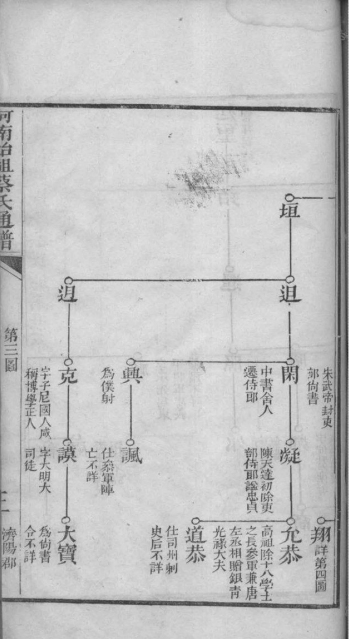 垣
迌
𨑨
閑
中書舍人
遷侍郎
興
為僕射
克
字子尼國人咸
稱博學正人
凝
陳天達初除吏
部侍郎諡忠貞
諷
仕梁軍陣
亡不詳
謨
字大明大
司徒
翔
詳第四圖
允恭
高祖除十八學士
之長參軍兼唐
左丞相贈銀青
光祿大夫
道恭
仕司州刺
史后不詳
大寶
為尚書
令不詳
朱武帝封吏
部尚書
河南始祖蔡氏通譜
第三圖
濟陽郡